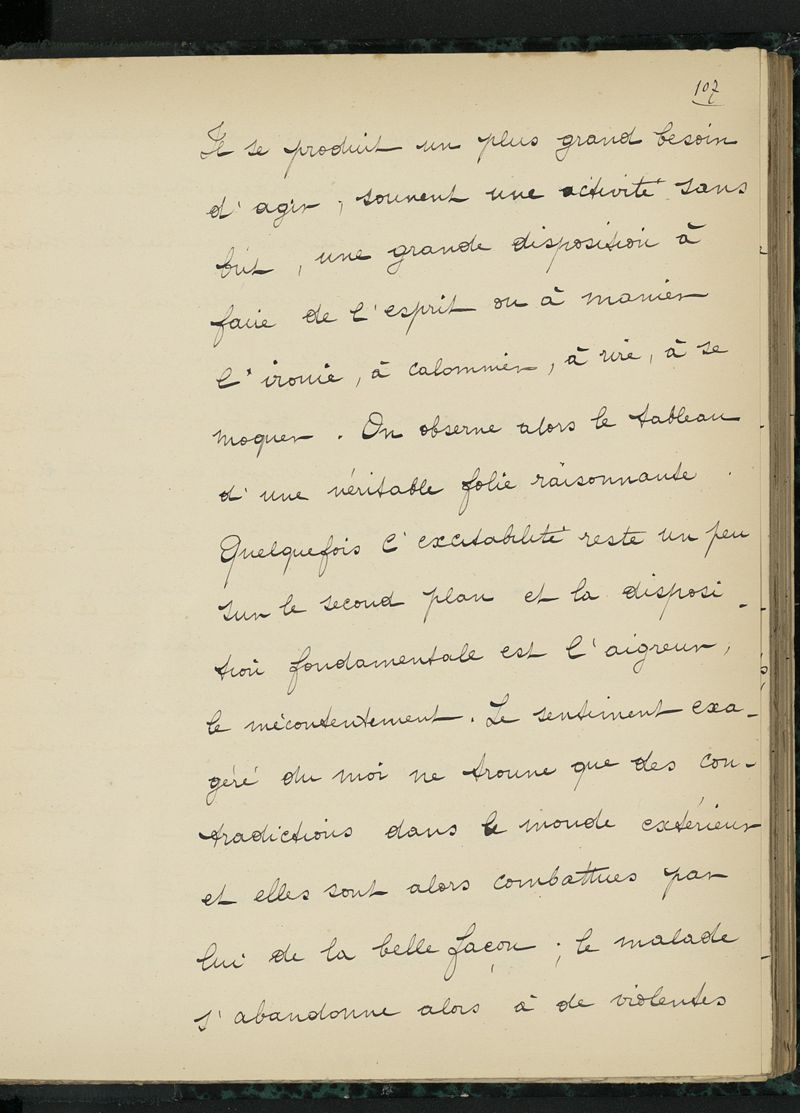 107
Il se produit un plus grand besoin
d'agir, souvent une activité sans
but, une grande disposition à
faire de l'esprit ou à manier
l'ironie, à calomnier, à rire, à se
moquer. On observe alors le tableau
d'une véritable folie raisonnante.
Quelquefois l'excitabilité reste un peu
sur le second plan et la disposi-
tion fondamentale est l'aigreur,
le mécontentement. Le sentiment exa-
géré du moi ne trouve que des con-
tradictions dans le monde extérieur
et elles sont alors combattues par
lui de la belle façon; le malade
s'abandonne alors à de violentes